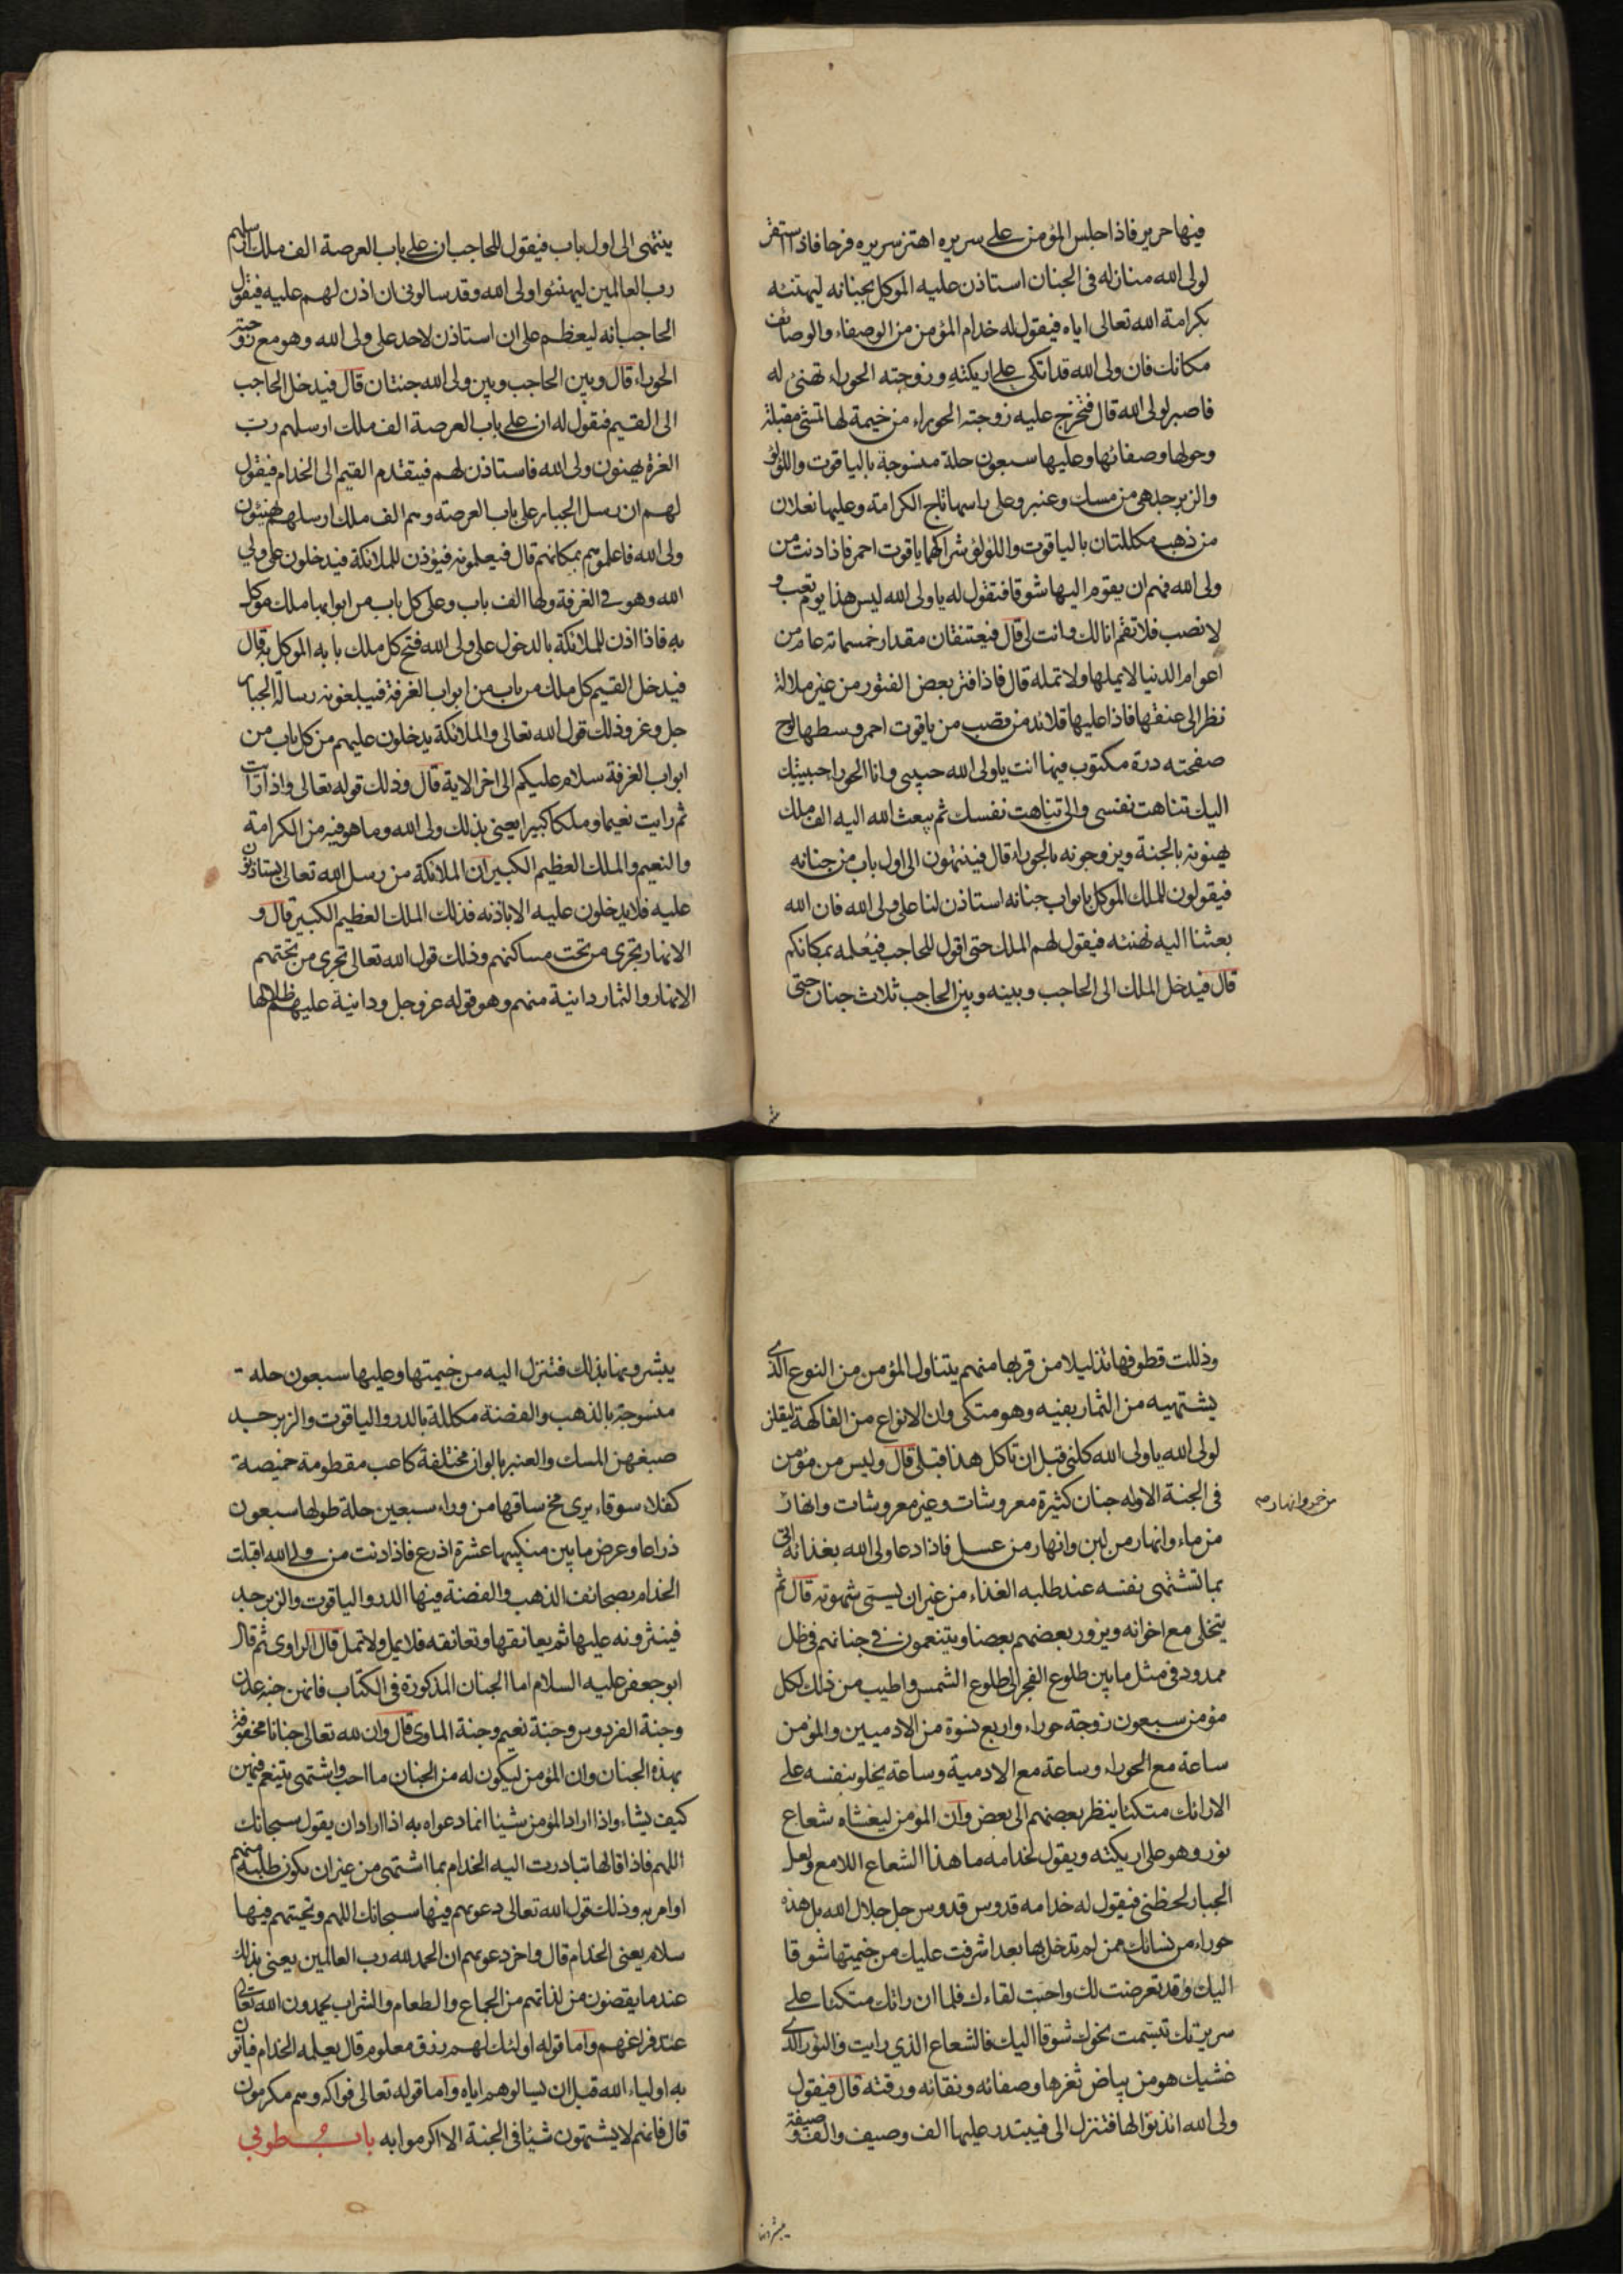 فيها حرير فاذا جلس المؤمن على سريره اهتز سريره فرحا فاذا استقر
لولى الله منازله فى الجنان استاذن عليه الموكل بجنانه ليهنئه
بكرامة الله تعالى اياه فيقول له خدام المؤمن من الوصفاء والوصائف
مكانك فان ولى الله قد اتكى على اريكته وزوجته الحوراء تهنئ له
فاصبر لولى الله قال فتخرج عليه زوجته الحوراء من خيمة لها تمشى مقبلة
وحولها وصفائها وعليها سبعون حلة منسوجة بالياقوت واللؤلؤ
والزبرجد هى من مسك وعنبر وعلى راسها تاج الكرامة وعليها نعلان
من ذهب مكللتان بالياقوت واللؤلؤ شراكهما ياقوت احمر فاذا دنت من
ولى الله فهم ان يقوم اليها شوقا فتقول له يا ولى الله ليس هذا يوم تعب و
لا نصب فلا تقم انا لك وانت لى قال فيعتنقان مقدار خمسمائة عام من
اعوام الدنيا لا يملها ولا تمله قال فاذا فتر بعض الفتور من غير ملالة
نظر الى عنقها فاذا عليها قلائد من قصب من ياقوت احمر وسطها لوح
صفحته درة مكتوب فيها انت يا ولى الله حبيبى وانا الحوراء حبيبتك
اليك تناهت نفسى والى تناهت نفسك ثم يبعث الله اليه الف ملك
يهنونه بالجنة ويزوجونه بالحوراء قال فينتهون الى اول باب من جنانه
فيقولون للملك الموكل بابواب جنانه استاذن لنا على ولى الله فان الله
بعثنا اليه نهنئه فيقول لهم الملك حتى اقول للحاجب فيعلمه بمكانكم
قال فيدخل الملك الى الحاجب وبينه وبين الحاجب ثلاث جنان حتى
ينتهى الى اول باب فيقول للحاجب ان على باب العرصة الف ملك ارسلهم
رب العالمين ليهنئوا ولى الله وقد سالونى ان اذن لهم عليه فيقول
الحاجب انه ليعظم على ان استاذن لاحد على ولى الله وهو مع زوجته
الحوراء قال وبين الحاجب وبين ولى الله جنتان قال فيدخل الحاجب
الى القيم فيقول له ان على باب العرصة الف ملك ارسلهم رب
العزة يهنون ولى الله فاستاذن لهم فيتقدم القيم الى الخدام فيقول
لهم ان رسل الجبار على باب العرصة وهم الف ملك ارسلهم يهنئون
ولى الله فاعلموهم بمكانهم قال فيعلمونه فيؤذن للملائكة فيدخلون على ولي
الله وهو فى الغرفة ولها الف باب وعلى كل باب من ابوابها ملك موكل
به فاذا اذن للملائكة بالدخول على ولى الله فتح كل ملك بابه الموكل به قال
فيدخل القيم كل ملك من باب من ابواب الغرفة فيبلغونه رسالة الجبار
جل وعز وذلك قول الله تعالى والملائكة يدخلون عليهم من كل باب من
ابواب الغرفة سلام عليكم الى اخر الاية قال وذلك قوله تعالى واذا رايت
ثم رايت نعيما وملكا كبيرا يعنى بذلك ولى الله وما هو فيه من الكرامة
والنعيم والملك العظيم الكبير ان الملائكة من رسل الله تعالى يستاذنون
عليه فلا يدخلون عليه الا باذنه فذلك الملك العظيم الكبير قال و
الانهار تجرى من تحت مساكنهم وذلك قول الله تعالى تجرى من تحتهم
الانهار والثمار دانية منهم وهو قوله عز وجل ودانية عليهم ظلالها
وذللت قطوفها تذليلا من قربها منهم يتناول المؤمن من النوع الذى
يشتهيه من الثمار بفيه وهو متكى وان الانواع من الفاكهة ليقلن
لولى الله يا ولى الله كلنى قبل ان تاكل هذا قبلى قال وليس من مؤمن
فى الجنة الا وله جنان كثيرة معروشات وغير معروشات وانهار
من خمر وانهار صح
من ماء وانهار من لبن وانهار من عسل فاذا دعا ولى الله بغذائه اتى
بما تشتهى نفسه عند طلبه الغذاء من غير ان يسمى شهوته قال ثم
يتخلى مع اخوانه ويزور بعضهم بعضا ويتنعمون فى جناتهم فى ظل
ممدود فى مثل ما بين طلوع الفجر الى طلوع الشمس واطيب من ذلك لكل
مؤمن سبعون زوجة حوراء واربع نسوة من الادميين والمؤمن
ساعة مع الحوراء وساعة مع الادمية وساعة يخلو بنفسه على
الارائك متكئا ينظر بعضهم الى بعض وان المؤمن ليغشاه شعاع
نور وهو على اريكته ويقول لخدامه ما هذا الشعاع اللامع ولعل
الجبار لحظنى فيقول له خدامه قدوس قدوس جل جلال الله بل هذه
حوراء من نسائك ممن لم تدخل بها بعد اشرفت عليك من خيمتها شوقا
اليك وقد تعرضت لك واحبت لقاءك فلما ان راتك متكئا على
سريرك تبسمت نحوك شوقا اليك فالشعاع الذي رايت والنور الذى
غشيك هو من بياض ثغرها وصفائه ونقائه ورقته قال فيقول
ولى الله ائذنوا لها فتنزل الى فيبتدر عليها الف وصيف والف وصيفة
يبشرونها
يبشرونها بذلك فتنزل اليه من خيمتها وعليها سبعون حله
منسوجة بالذهب والفضة مكللة بالدر والياقوت والزبرجد
صبغهن المسك والعنبر بالوان مختلفة كاعب مقطومة خميصة
كفلاء سوقاء يرى مخ ساقها من وراء سبعين حلة طولها سبعون
ذراعا وعرض ما بين منكبيها عشرة اذرع فاذا دنت من ولى الله اقبلت
الخدام بصحائف الذهب والفضة فيها الدر والياقوت والزبرجد
فينثرونه عليها ثم يعانقها وتعانقه فلا يمل ولا تمل قال الراوى ثم قال
ابو جعفر عليه السلام اما الجنان المذكورة فى الكتاب فانهن جنة عدن
وجنة الفردوس وجنة نعيم وجنة الماوى قال وان لله تعالى جنانا محفوفة
بهذه الجنان وان المؤمن ليكون له من الجنان ما احب واشتهى يتنعم فيهن
كيف يشاء واذا اراد المؤمن شيئا انما دعواه به اذا اراد ان يقول سبحانك
اللهم فاذا قالها تبادرت اليه الخدام بما اشتهى من غير ان يكون طلبه منهم
او امر به وذلك قول الله تعالى دعويهم فيها سبحانك اللهم وتحيتهم فيها
سلام يعنى الخدام قال واخر دعويهم ان الحمد لله رب العالمين يعنى بذلك
عند ما يقضون من لذاتهم من الجماع والطعام والشراب يحمدون الله تعالى
عند فراغهم واما قوله اولئك لهم رزق معلوم قال يعلمه الخدام فياتون
به اولياء الله قبل ان يسالوهم اياه واما قوله تعالى فواكه وهم مكرمون
قال فانهم لا يشتهون شيئا فى الجنة الا اكرموا به باب طوبى